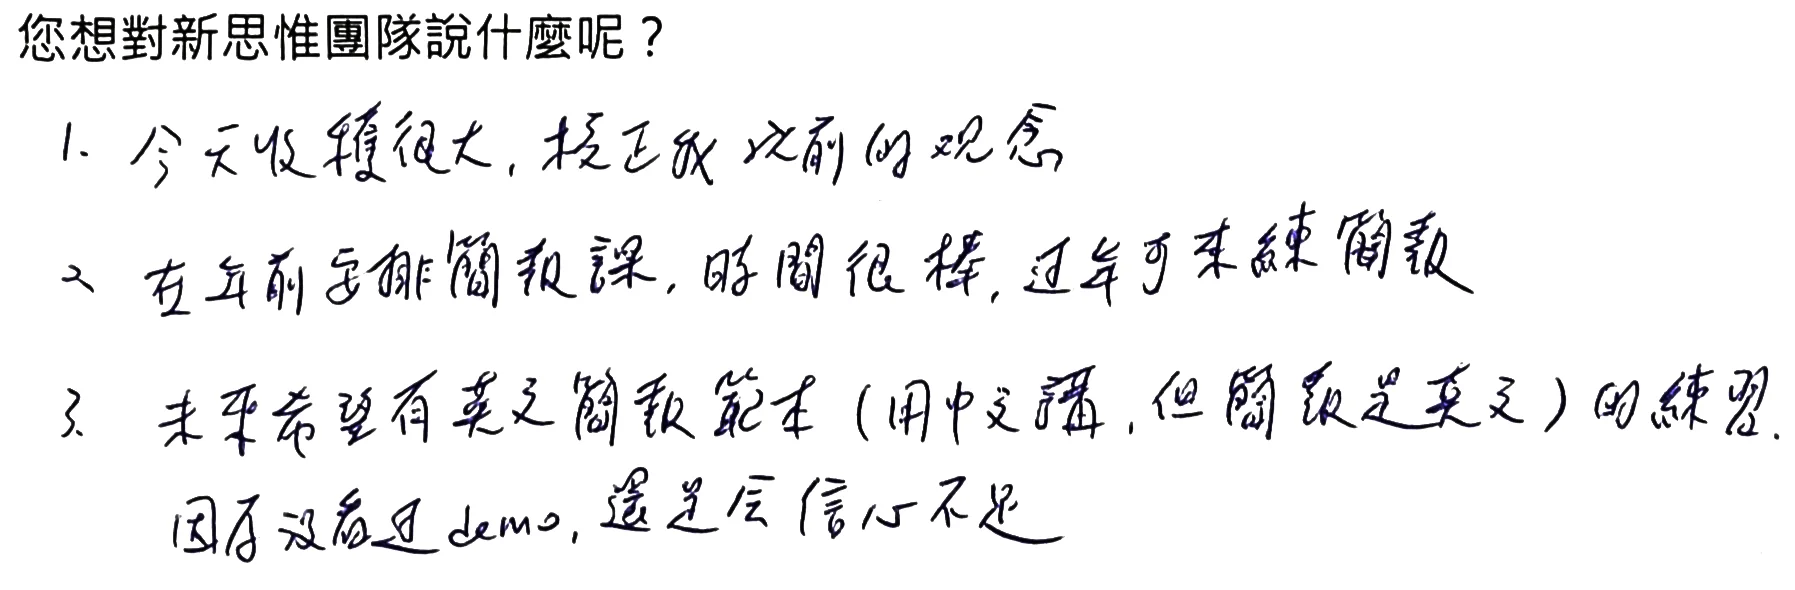 您想對新思惟團隊說什麼呢？
1. 今天收穫很大，校正我以前的观念
2. 在年前安排簡報課，時間很棒，过年可來練簡報
3. 未來希望有英文簡報範本（用中文講，但簡報是英文）的練習.
因为没看过demo，還是会信心不足